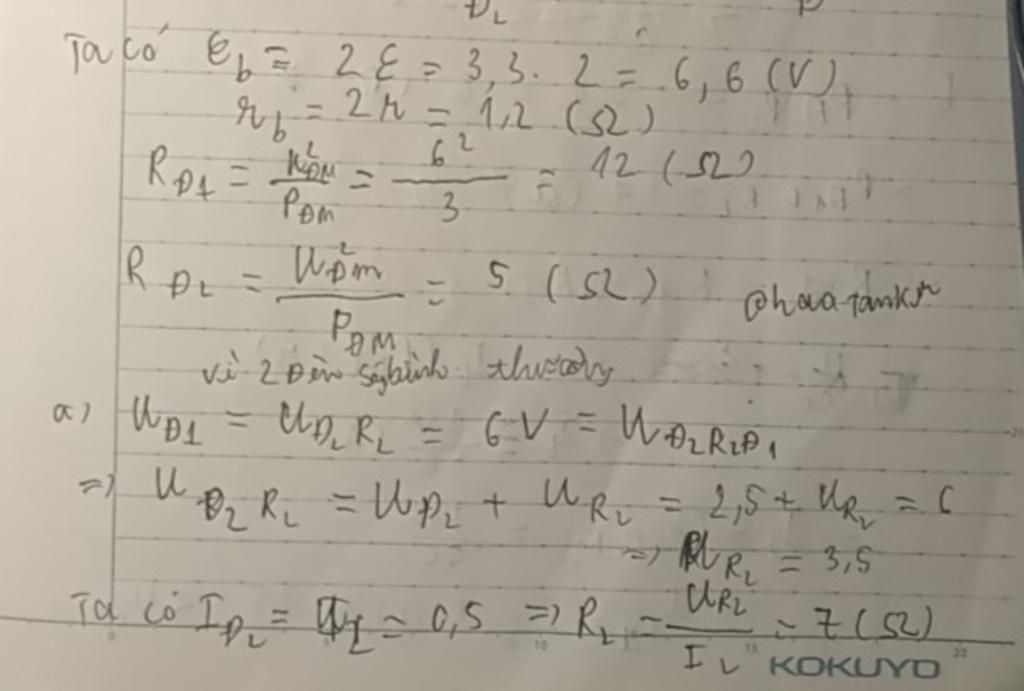 Đ₂ P
Ta có ℰ_b = 2ℰ = 3,3. 2 = 6,6 (V)
r_b = 2r = 1,2 (Ω)
R_Đ1 = U²_ĐM / P_ĐM = 6² / 3 = 12 (Ω)
R_Đ2 = U²_Đm / P_ĐM = 5 (Ω)
vì 2 đèn sáng bình thường
a) U_Đ1 = U_Đ2R2 = 6 V = U_Đ2R2Đ1
=> U_Đ2R2 = U_Đ2 + U_R2 = 2,5 + U_R2 = 6
=> U_R2 = 3,5
Ta có I_Đ2 = I_2 = 0,5 => R_2 = U_R2 / I_2 = 7 (Ω)
KOKUYO